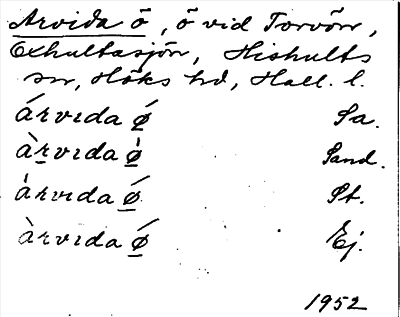 Arvida ö, ö vid Torvön,
Exhultasjön, Hishults
sn, Höks hd, Hall. l.
árvida ǿ Sa.
àrvida ǿ Sand.
árvida ǿ St.
àrvida ǿ Ej.
1952